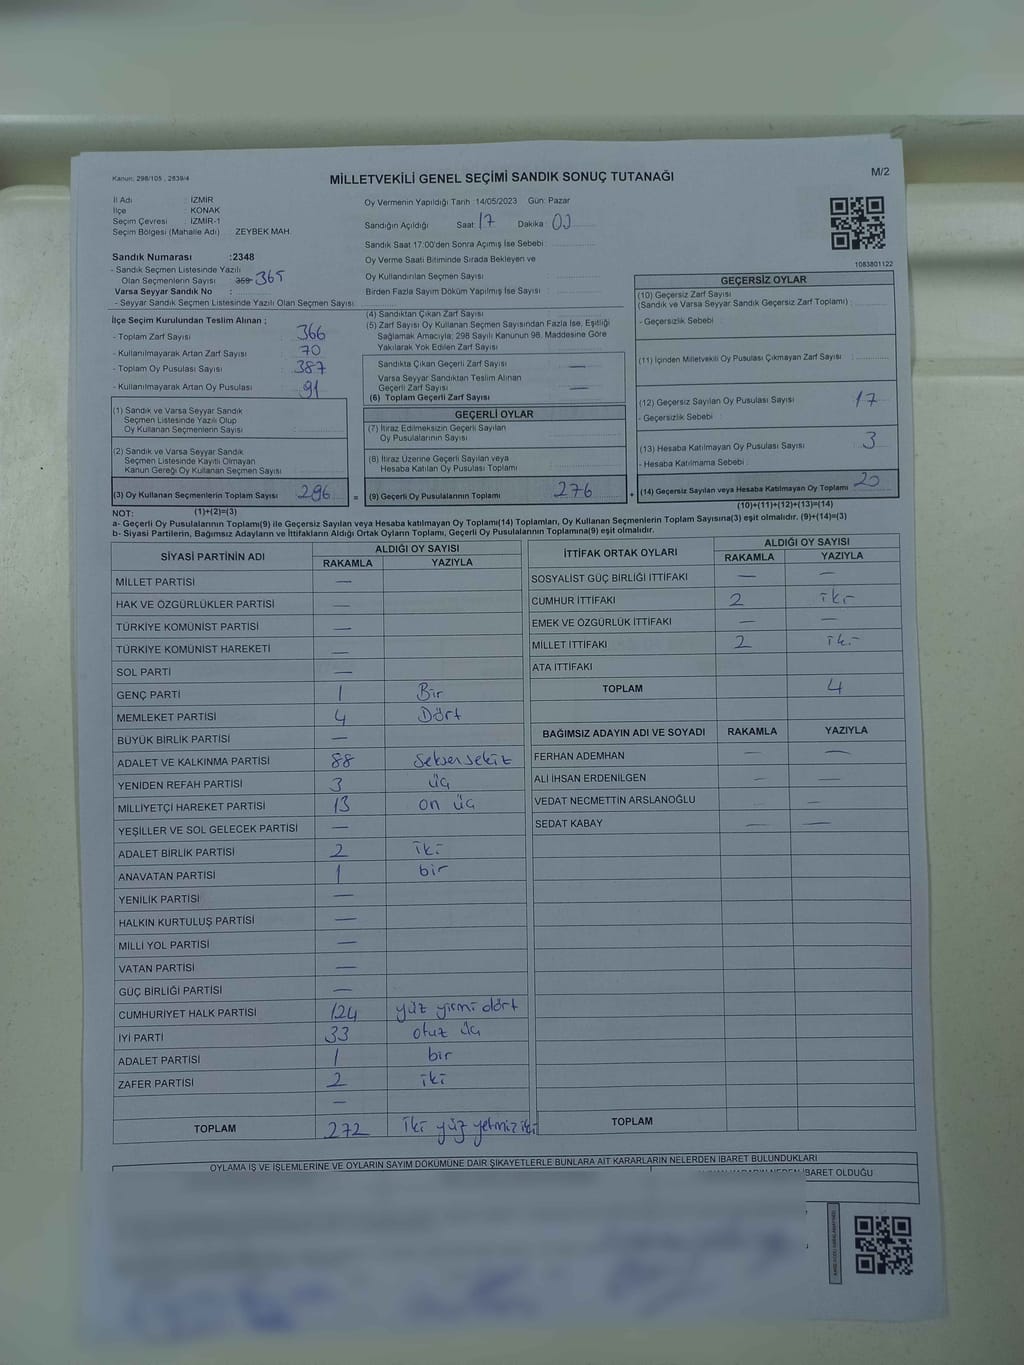 Kanun; 298/105 , 2839/4
MİLLETVEKİLİ GENEL SEÇİMİ SANDIK SONUÇ TUTANAĞI
M/2
İl Adı : İZMİR
İlçe : KONAK
Seçim Çevresi : İZMİR-1
Seçim Bölgesi (Mahalle Adı) : ZEYBEK MAH.
Oy Vermenin Yapıldığı Tarih : 14/05/2023 Gün: Pazar
Sandığın Açıldığı Saat: 17 Dakika 00
Sandık Saat 17:00'den Sonra Açımış İse Sebebi :
Oy Verme Saati Bitiminde Sırada Bekleyen ve
Oy Kullandırılan Seçmen Sayısı :
Birden Fazla Sayım Döküm Yapılmış İse Sayısı :
1083801122
Sandık Numarası :2348
- Sandık Seçmen Listesinde Yazılı
Olan Seçmenlerin Sayısı : 359 365
Varsa Seyyar Sandık No :
- Seyyar Sandık Seçmen Listesinde Yazılı Olan Seçmen Sayısı:
İlçe Seçim Kurulundan Teslim Alınan ;
- Toplam Zarf Sayısı : 366
- Kullanılmayarak Artan Zarf Sayısı : 70
- Toplam Oy Pusulası Sayısı : 387
- Kullanılmayarak Artan Oy Pusulası : 91
(1) Sandık ve Varsa Seyyar Sandık
Seçmen Listesinde Yazılı Olup
Oy Kullanan Seçmenlerin Sayısı :
(2) Sandık ve Varsa Seyyar Sandık
Seçmen Listesinde Kayıtlı Olmayan
Kanun Gereği Oy Kullanan Seçmen Sayısı :
(3) Oy Kullanan Seçmenlerin Toplam Sayısı : 296
(1)+(2)=(3)
(4) Sandıktan Çıkan Zarf Sayısı :
(5) Zarf Sayısı Oy Kullanan Seçmen Sayısından Fazla İse, Eşitliği
Sağlamak Amacıyla; 298 Sayılı Kanunun 98. Maddesine Göre
Yakılarak Yok Edilen Zarf Sayısı :
Sandıkta Çıkan Geçerli Zarf Sayısı : —
Varsa Seyyar Sandıktan Teslim Alınan
Geçerli Zarf Sayısı : —
(6) Toplam Geçerli Zarf Sayısı :
GEÇERLİ OYLAR
(7) İtiraz Edilmeksizin Geçerli Sayılan
Oy Pusulalarının Sayısı :
(8) İtiraz Üzerine Geçerli Sayılan veya
Hesaba Katılan Oy Pusulası Toplamı :
= (9) Geçerli Oy Pusulalarının Toplamı : 276
GEÇERSİZ OYLAR
(10) Geçersiz Zarf Sayısı
(Sandık ve Varsa Seyyar Sandık Geçersiz Zarf Toplamı) :
- Geçersizlik Sebebi :
(11) İçinden Milletvekili Oy Pusulası Çıkmayan Zarf Sayısı :
(12) Geçersiz Sayılan Oy Pusulası Sayısı : 17
- Geçersizlik Sebebi :
(13) Hesaba Katılmayan Oy Pusulası Sayısı : 3
- Hesaba Katılmama Sebebi :
+ (14) Geçersiz Sayılan veya Hesaba Katılmayan Oy Toplamı : 20
(10)+(11)+(12)+(13)=(14)
NOT:
a- Geçerli Oy Pusulalarının Toplamı(9) ile Geçersiz Sayılan veya Hesaba katılmayan Oy Toplamı(14) Toplamları, Oy Kullanan Seçmenlerin Toplam Sayısına(3) eşit olmalıdır. (9)+(14)=(3)
b- Siyasi Partilerin, Bağımsız Adayların ve İttifakların Aldığı Ortak Oyların Toplamı, Geçerli Oy Pusulalarının Toplamına(9) eşit olmalıdır.
SİYASİ PARTİNİN ADI ALDIĞI OY SAYISI
RAKAMLA YAZIYLA
MİLLET PARTİSİ —
HAK VE ÖZGÜRLÜKLER PARTİSİ —
TÜRKİYE KOMÜNİST PARTİSİ —
TÜRKİYE KOMÜNİST HAREKETİ —
SOL PARTİ —
GENÇ PARTİ 1 Bir
MEMLEKET PARTİSİ 4 Dört
BÜYÜK BİRLİK PARTİSİ —
ADALET VE KALKINMA PARTİSİ 88 Seksensekiz
YENİDEN REFAH PARTİSİ 3 üç
MİLLİYETÇİ HAREKET PARTİSİ 13 on üç
YEŞİLLER VE SOL GELECEK PARTİSİ —
ADALET BİRLİK PARTİSİ 2 iki
ANAVATAN PARTİSİ 1 bir
YENİLİK PARTİSİ —
HALKIN KURTULUŞ PARTİSİ —
MİLLİ YOL PARTİSİ —
VATAN PARTİSİ —
GÜÇ BİRLİĞİ PARTİSİ —
CUMHURİYET HALK PARTİSİ 124 yüz yirmi dört
İYİ PARTİ 33 otuz üç
ADALET PARTİSİ 1 bir
ZAFER PARTİSİ 2 iki
—
TOPLAM 272 iki yüz yetmiz iki
İTTİFAK ORTAK OYLARI ALDIĞI OY SAYISI
RAKAMLA YAZIYLA
SOSYALİST GÜÇ BİRLİĞİ İTTİFAKI — —
CUMHUR İTTİFAKI 2 iki
EMEK VE ÖZGÜRLÜK İTTİFAKI — —
MİLLET İTTİFAKI 2 iki
ATA İTTİFAKI
TOPLAM 4
BAĞIMSIZ ADAYIN ADI VE SOYADI RAKAMLA YAZIYLA
FERHAN ADEMHAN — —
ALİ İHSAN ERDENİLGEN — —
VEDAT NECMETTİN ARSLANOĞLU —
SEDAT KABAY — —
TOPLAM
OYLAMA İŞ VE İŞLEMLERİNE VE OYLARIN SAYIM DÖKÜMÜNE DAİR ŞİKAYETLERLE BUNLARA AİT KARARLARIN NELERDEN İBARET BULUNDUKLARI
İBARET OLDUĞU